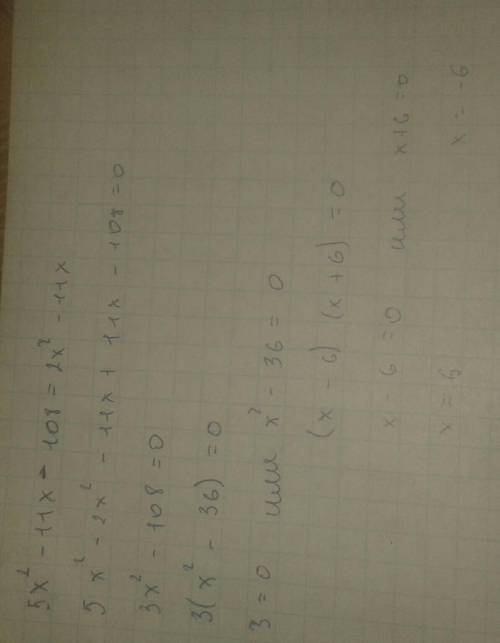 5x² - 11x - 108 = 2x² - 11x
5x² - 2x² - 11x + 11x - 108 = 0
3x² - 108 = 0
3(x² - 36) = 0
3 = 0 или x² - 36 = 0
(x - 6) (x + 6) = 0
x - 6 = 0 или x + 6 = 0
x = 6 x = -6